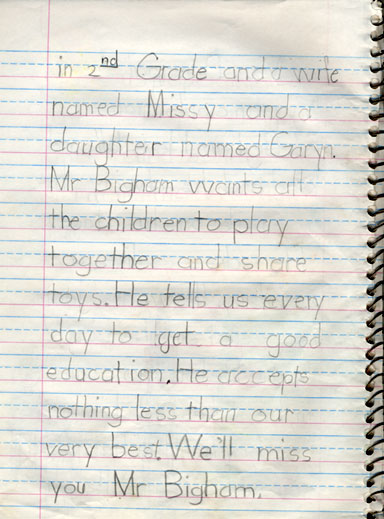 in 2nd Grade and a wife
named Missy and a
daughter named Garyn.
Mr Bigham wants all
the children to play
together and share
toys. He tells us every
day to get a good
education. He accepts
nothing less than our
very best. We'll miss
you Mr Bigham.